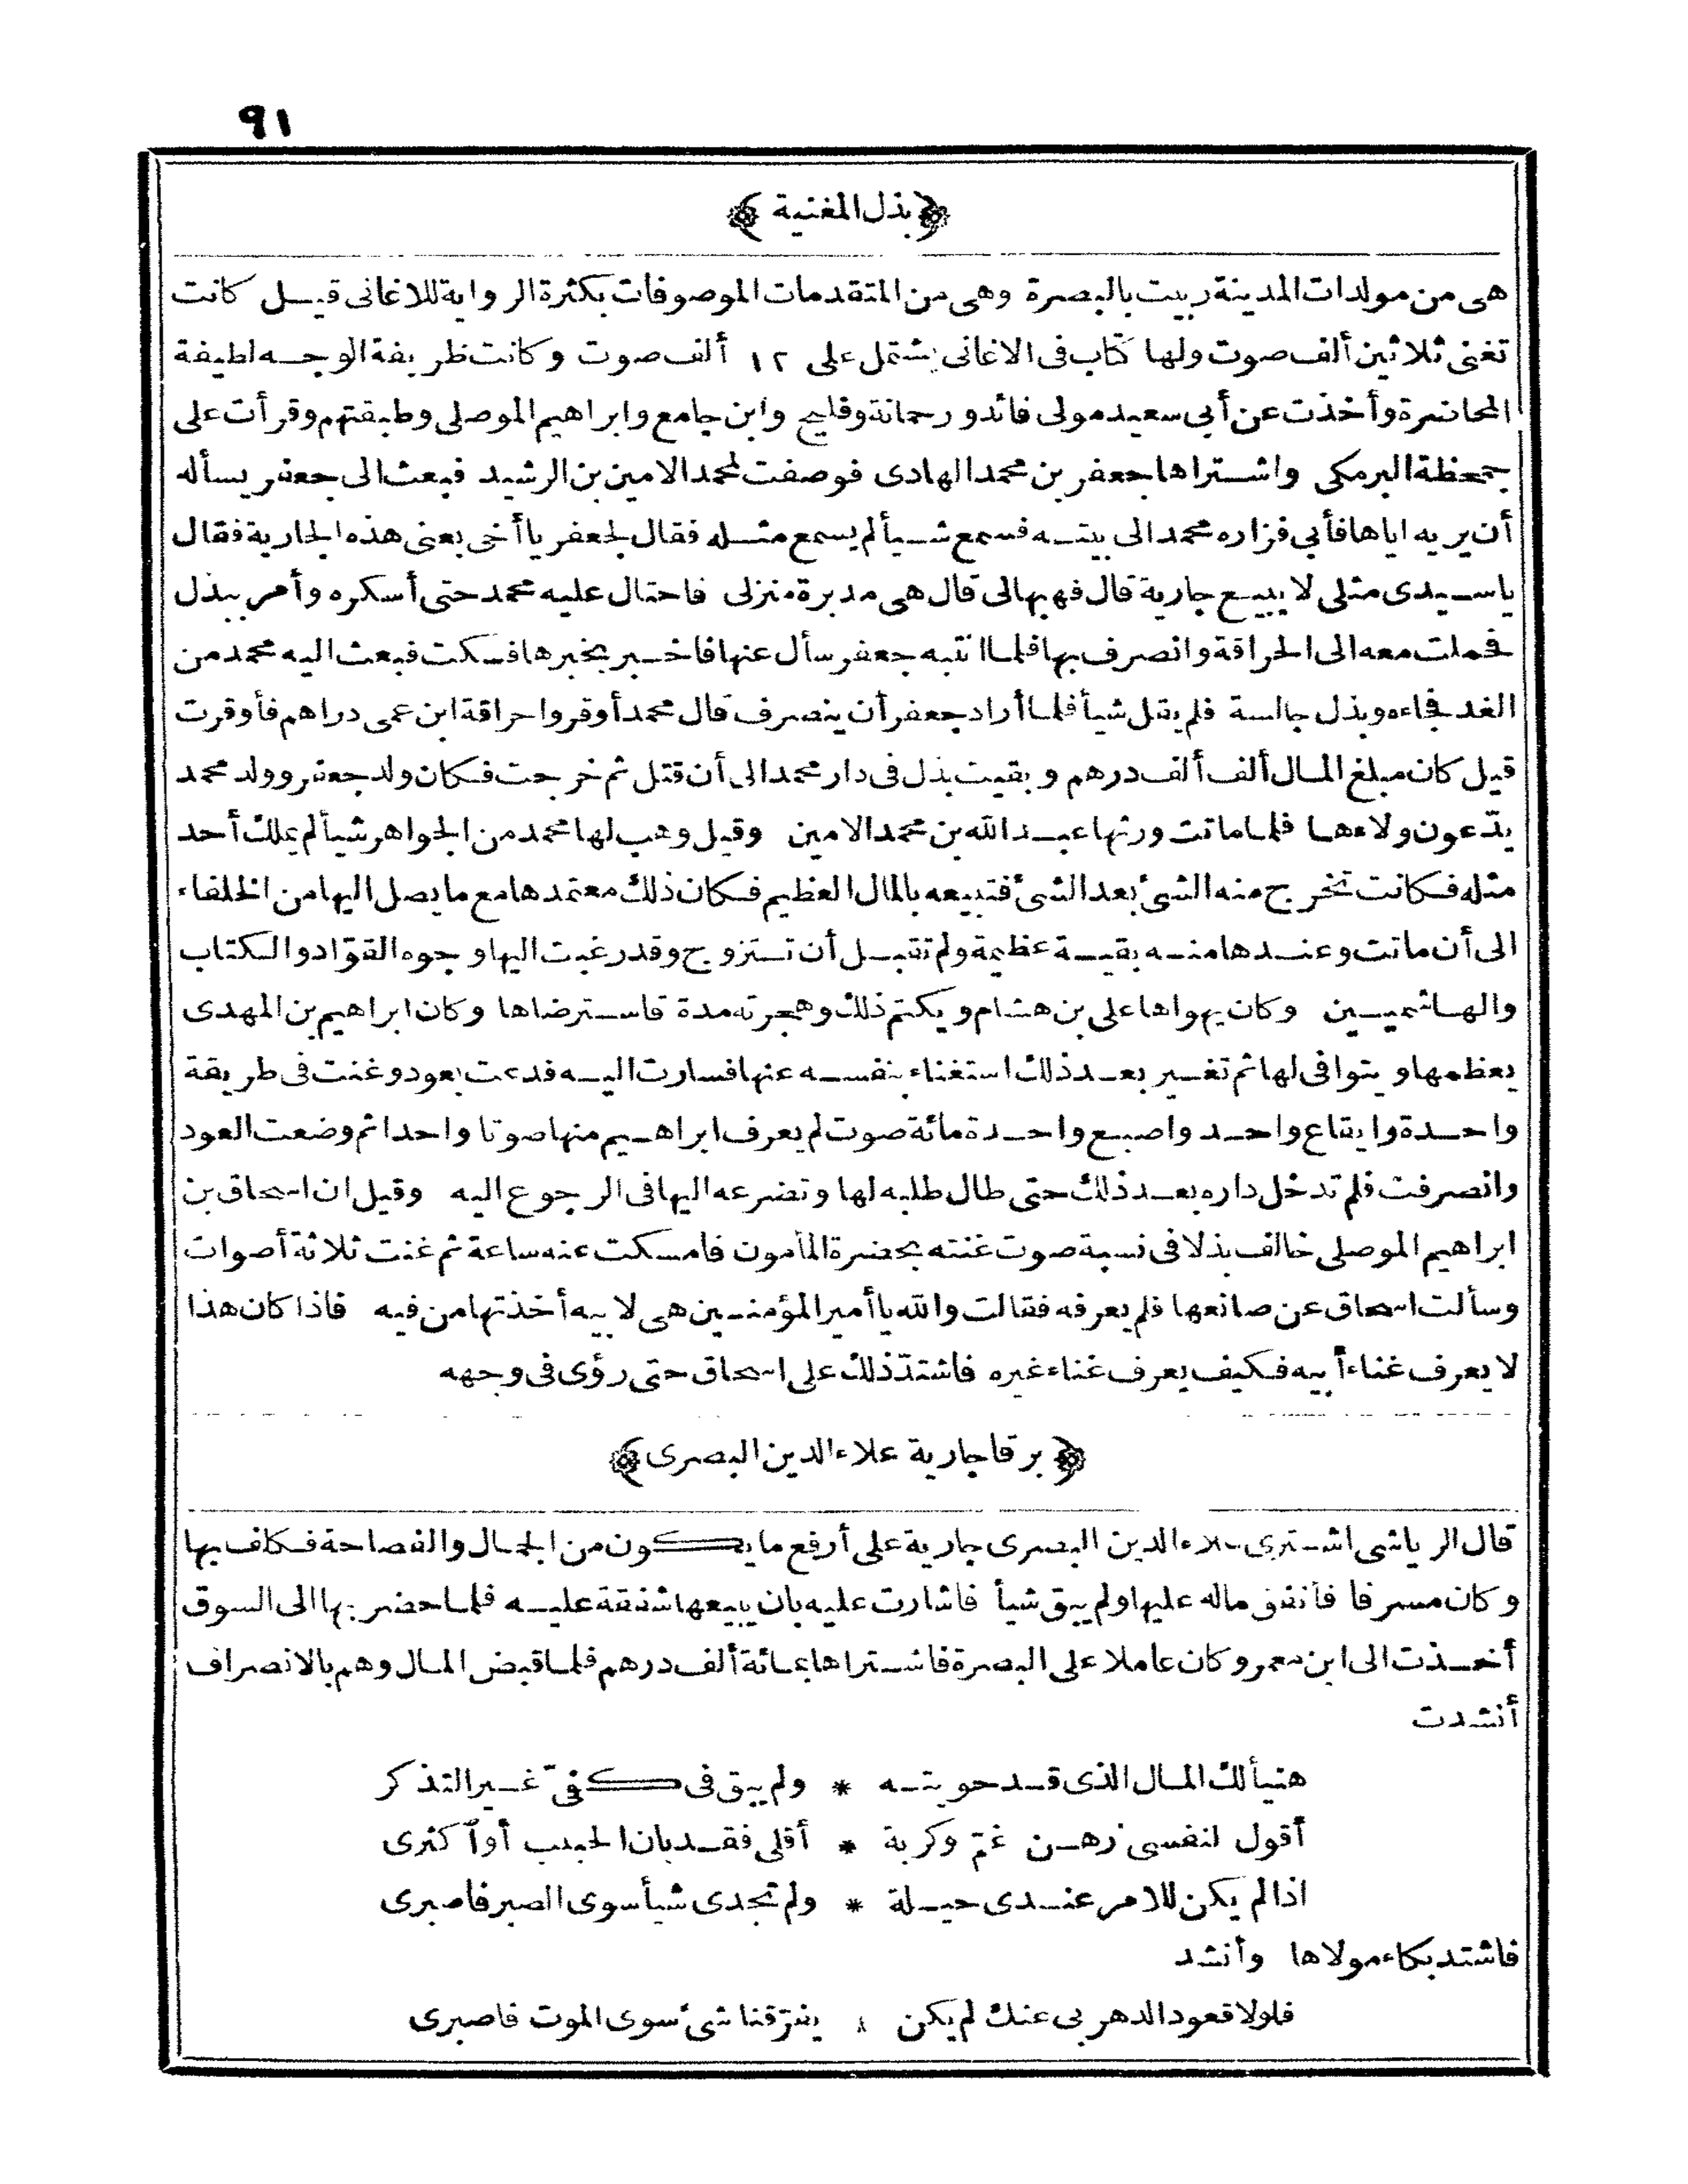 ٩١
﴿بذل المغنية﴾
هى من مولدات المدينة ربيت بالبصرة وهى من المتقدمات الموصوفات بكثرة الرواية للاغانى قيل كانت
تغنى ثلاثين ألف صوت ولها كتاب فى الاغانى يشتمل على ١٢ ألف صوت وكانت ظريفة الوجه لطيفة
المحاضرة وأخذت عن أبى سعيد مولى فائد ورحمانة وفليح وابن جامع وابراهيم الموصلى وطبقتهم وقرأت على
جحظة البرمكى واشتراها جعفر بن محمد الهادى فوصفت لمحمد الامين بن الرشيد فبعث الى جعفر يسأله
أن يريه اياها فأبى فزاره محمد الى بيته فسمع شيأ لم يسمع مثله فقال لجعفر يا أخى بعنى هذه الجارية فقال
ياسيدى مثلى لا يبيع جارية قال فهبها لى قال هى مدبرة منزلى فاحتال عليه محمد حتى أسكره وأمر ببذل
فحملت معه الى الحراقة وانصرف بها فلما انتبه جعفر سأل عنها فاخبر بخبرها فسكت فبعث اليه محمد من
الغد فجاءه وبذل جالسة فلم يقل شيأ فلما أراد جعفر أن ينصرف قال محمد أوقروا حراقة ابن عمى دراهم فأوقرت
قيل كان مبلغ المال ألف ألف درهم وبقيت بذل فى دار محمد الى أن قتل ثم خرجت فكان ولد جعفر وولد محمد
يدّعون ولاءها فلما ماتت ورثها عبد الله بن محمد الامين وقيل وهب لها محمد من الجواهر شيأ لم يملك أحد
مثله فكانت تخرج منه الشئ بعد الشئ فتبيعه بالمال العظيم فكان ذلك معتمدها مع ما يصل اليها من الخلفاء
الى أن ماتت وعندها منه بقية عظيمة ولم تقبل أن تتزوج وقد رغبت اليها وجوه القوّاد والكتاب
والهاشميين وكان يهواها على بن هشام ويكتم ذلك وهجرته مدة فاسترضاها وكان ابراهيم بن المهدى
يعظمها ويتوافى لها ثم تغير بعد ذلك استغناء بنفسه عنها فسارت اليه فدعت بعود وغنت فى طريقة
واحدة وايقاع واحد واصبع واحدة مائة صوت لم يعرف ابراهيم منها صوتا واحدا ثم وضعت العود
وانصرفت فلم تدخل داره بعد ذلك حتى طال طلبه لها وتضرعه اليها فى الرجوع اليه وقيل ان اسحاق بن
ابراهيم الموصلى خالف بذلا فى نسبة صوت غنته بحضرة المأمون فامسكت عنه ساعة ثم غنت ثلاثة أصوات
وسألت اسحاق عن صانعها فلم يعرفه فقالت والله يا أمير المؤمنين هى لابيه أخذتها من فيه فاذا كان هذا
لا يعرف غناء أبيه فكيف يعرف غناء غيره فاشتدّ ذلك على اسحاق حتى رؤى فى وجهه
﴿برقا جارية علاء الدين البصرى﴾
قال الرياشى اشترى علاء الدين البصرى جارية على أرفع ما يكون من الجمال والفصاحة فكلف بها
وكان مسرفا فأنفق ماله عليها ولم يبق شيأ فاشارت عليه بان يبيعها شفقة عليه فلما حضر بها الى السوق
أخذت الى ابن معمر وكان عاملا على البصرة فاشتراها بمائة ألف درهم فلما قبض المال وهم بالانصراف
أنشدت
هنيأ لك المال الذى قد حويته * ولم يبق فى كفىّ غير التذكر
أقول لنفسى رهن غمّ وكربة * أقلى فقد بان الحبيب أوأكثرى
اذا لم يكن للامر عندى حيلة * ولم تجدى شيأ سوى الصبر فاصبرى
فاشتد بكاء مولاها وأنشد
فلولا قعود الدهر بى عنك لم يكن * يفرّقنا شئ سوى الموت فاصبرى